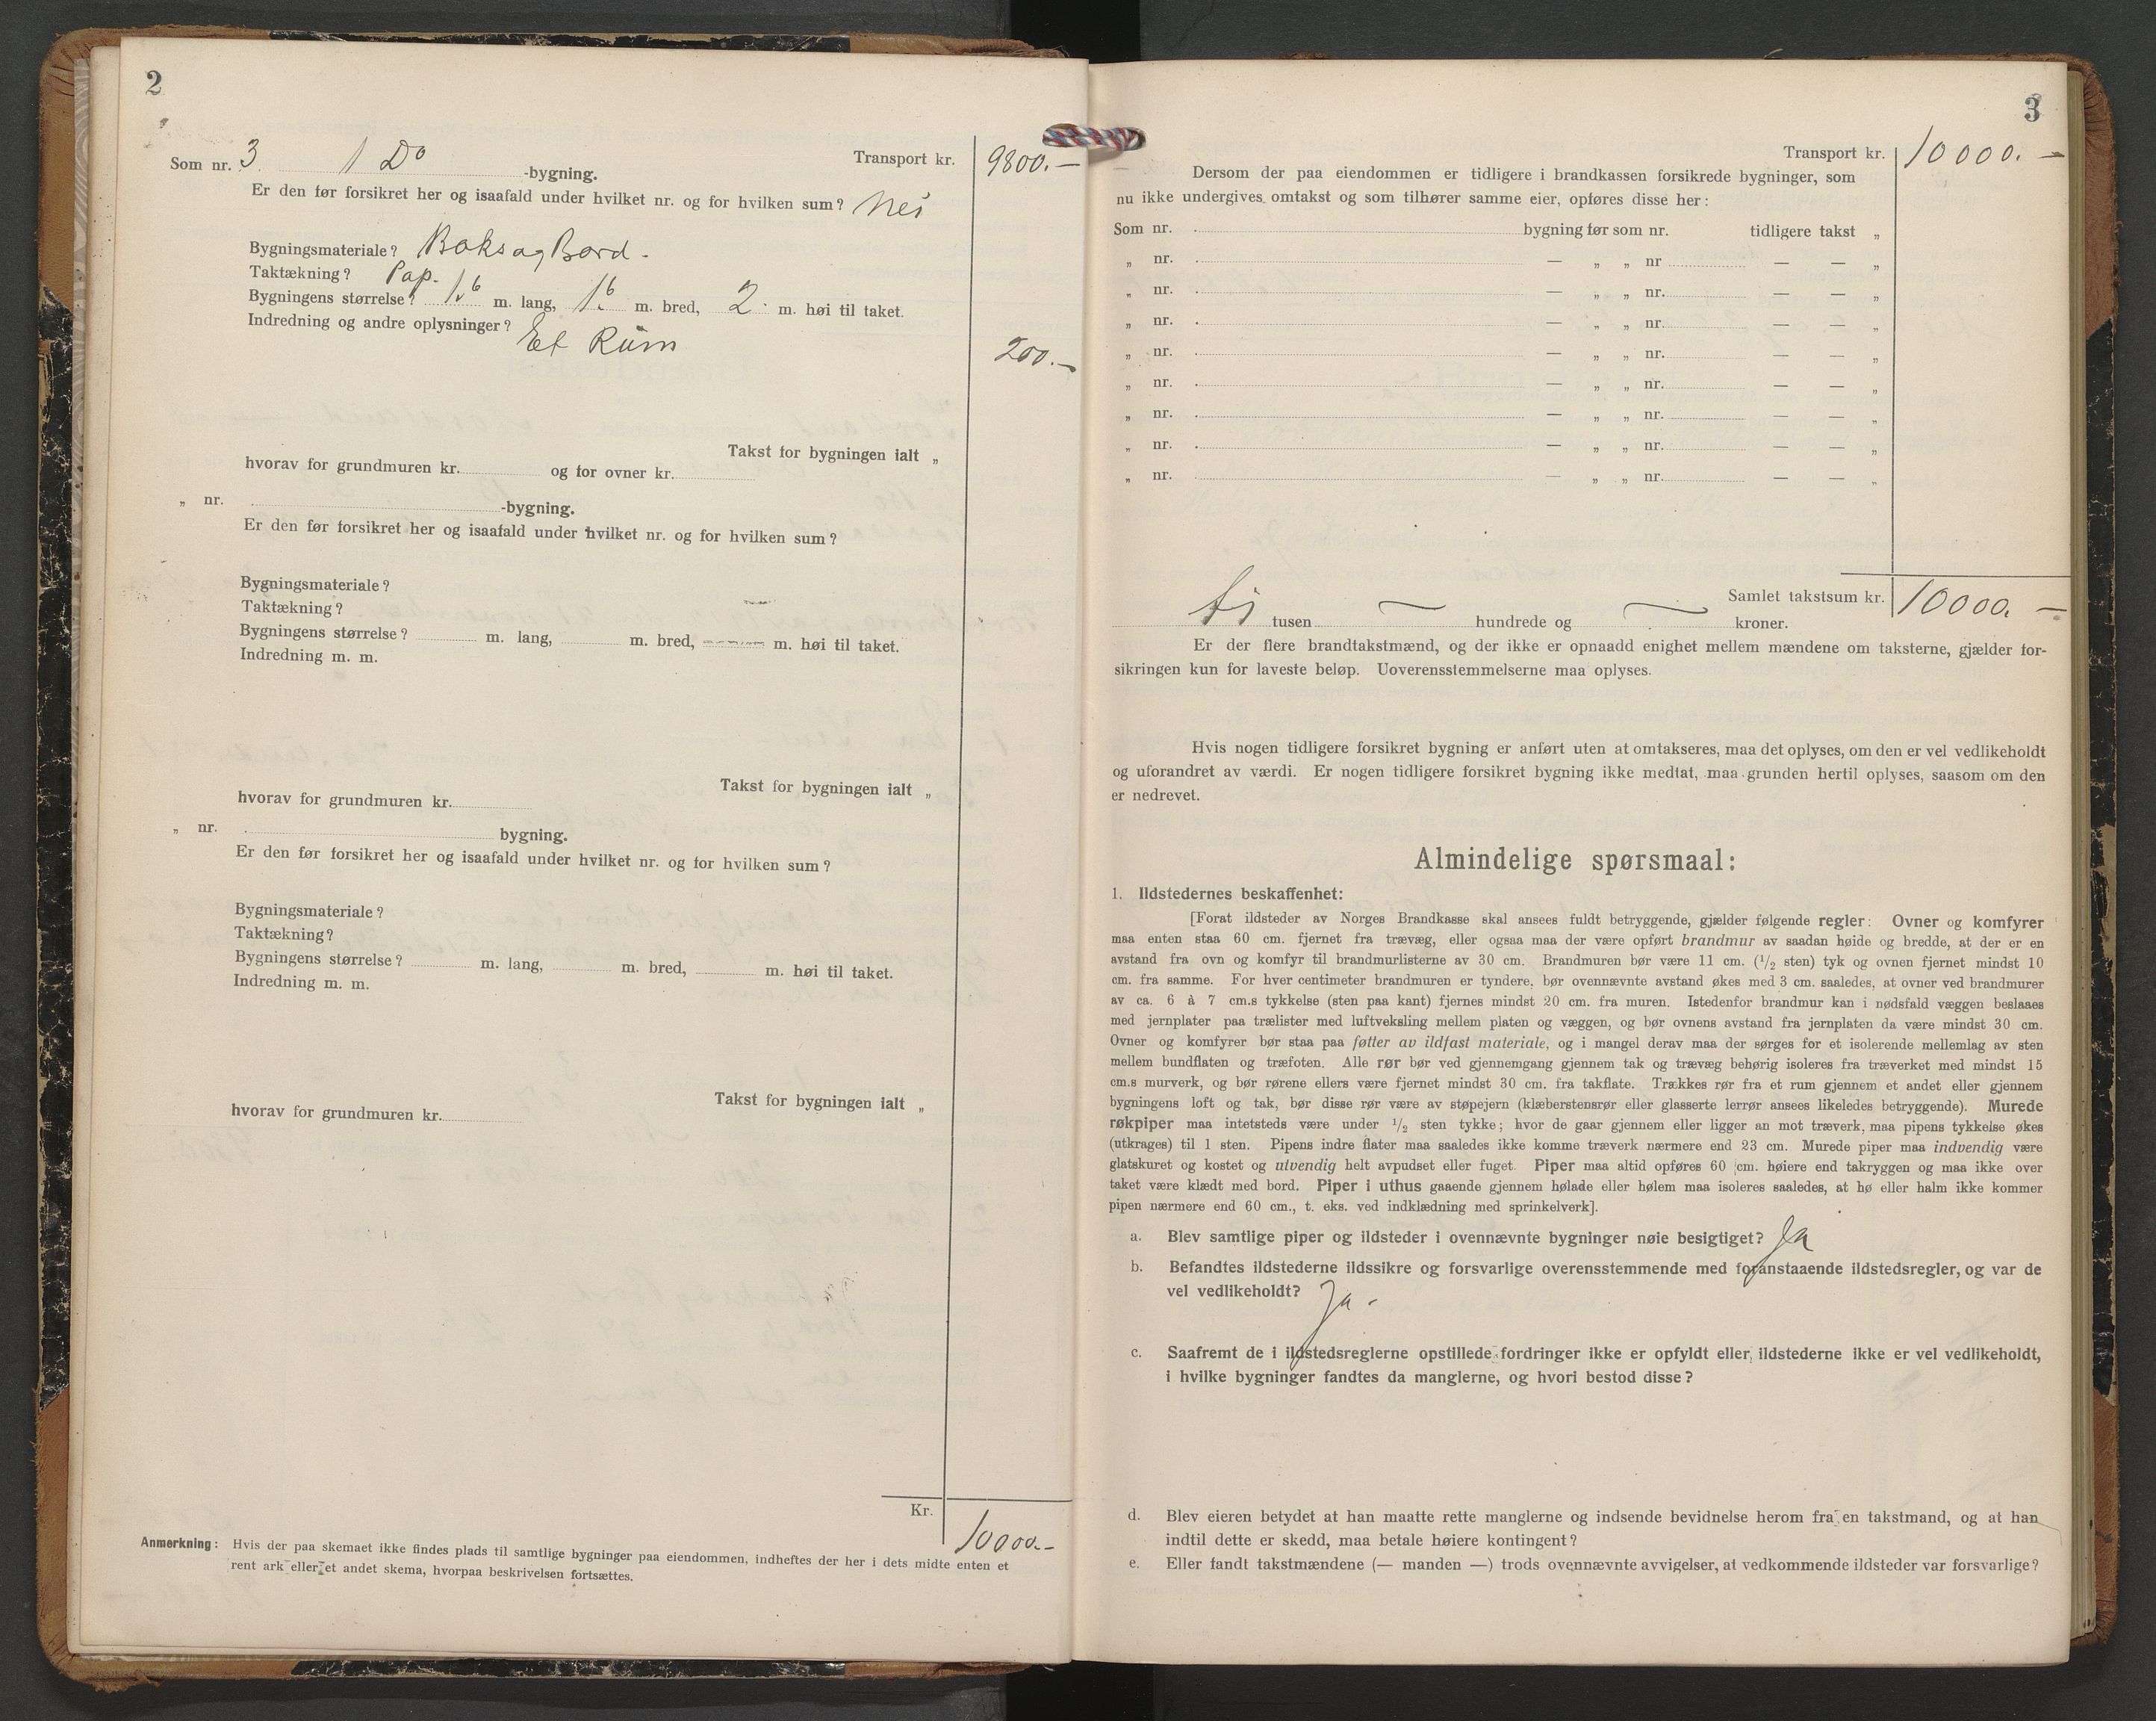 2
Som nr. 3. 1 Do -bygning. Transport kr. 9800.-
Er den før forsikret her og isaafald under hvilket nr. og for hvilken sum? Nei
Bygningsmateriale? Boks og Bord.
Taktækning? Pap.
Bygningens størrelse? 1.6 m. lang, 1.6 m. bred, 2. m. høi til taket.
Indredning og andre oplysninger? Et Rum
200.-
Takst for bygningen ialt „
hvorav for grundmuren kr. og for ovner kr.
„ nr. -bygning.
Er den før forsikret her og isaafald under hvilket nr. og for hvilken sum?
Bygningsmateriale?
Taktækning?
Bygningens størrelse? m. lang, m. bred, m. høi til taket.
Indredning m. m.
Takst for bygningen ialt „
hvorav for grundmuren kr.
„ nr. bygning.
Er den før forsikret her og isaafald under hvilket nr. og for hvilken sum?
Bygningsmateriale?
Taktækning?
Bygningens størrelse? m. lang, m. bred, m. høi til taket.
Indredning m. m.
Takst for bygningen ialt „
hvorav for grundmuren kr.
Kr. 10000.-
Anmerkning: Hvis der paa skemaet ikke findes plads til samtlige bygninger paa eiendommen, indheftes der her i dets midte enten et
rent ark eller et andet skema, hvorpaa beskrivelsen fortsættes.
3
Transport kr. 10000.-
Dersom der paa eiendommen er tidligere i brandkassen forsikrede bygninger, som
nu ikke undergives omtakst og som tilhører samme eier, opføres disse her:
Som nr. bygning før som nr. tidligere takst „
„ nr. — „ „ nr — — „
„ nr. — „ „ nr. — — „
„ nr. — „ „ nr. — — „
„ nr. — „ „ nr. — — „
„ nr. — „ „ nr. — — „
„ nr. — „ „ nr. — — „
„ nr. — „ „ nr. — — „
„ nr. — „ „ nr. — — „
Samlet takstsum kr. 10000.-
ti tusen — hundrede og — kroner.
Er der flere brandtakstmænd, og der ikke er opnaadd enighet mellem mændene om taksterne, gjælder for-
sikringen kun for laveste beløp. Uoverensstemmelserne maa oplyses.
Hvis nogen tidligere forsikret bygning er anført uten at omtakseres, maa det oplyses, om den er vel vedlikeholdt
og uforandret av værdi. Er nogen tidligere forsikret bygning ikke medtat, maa grunden hertil oplyses, saasom om den
er nedrevet.
Almindelige spørsmaal:
1. Ildstedernes beskaffenhet:
[Forat ildsteder av Norges Brandkasse skal ansees fuldt betryggende, gjælder følgende regler: Ovner og komfyrer
maa enten staa 60 cm. fjernet fra trævæg, eller ogsaa maa der være opført brandmur av saadan høide og bredde, at der er en
avstand fra ovn og komfyr til brandmurlisterne av 30 cm. Brandmuren bør være 11 cm. (1/2 sten) tyk og ovnen fjernet mindst 10
cm. fra samme. For hver centimeter brandmuren er tyndere, bør ovennævnte avstand økes med 3 cm. saaledes, at ovner ved brandmurer
av ca. 6 à 7 cm.s tykkelse (sten paa kant) fjernes mindst 20 cm. fra muren. Istedenfor brandmur kan i nødsfald væggen beslaaes
med jernplater paa trælister med luftveksling mellem platen og væggen, og bør ovnens avstand fra jernplaten da være mindst 30 cm.
Ovner og komfyrer bør staa paa føtter av ildfast materiale, og i mangel derav maa der sørges for et isolerende mellemlag av sten
mellem bundflaten og træfoten. Alle rør bør ved gjennemgang gjennem tak og trævæg behørig isoleres fra træverket med mindst 15
cm.s murverk, og bør rørene ellers være fjernet mindst 30 cm. fra takflate. Trækkes rør fra et rum gjennem et andet eller gjennem
bygningens loft og tak, bør disse rør være av støpejern (klæberstensrør eller glasserte lerrør ansees likeledes betryggende). Murede
røkpiper maa intetsteds være under 1/2 sten tykke; hvor de gaar gjennem eller ligger an mot træverk, maa pipens tykkelse økes
(utkrages) til 1 sten. Pipens indre flater maa saaledes ikke komme træverk nærmere end 23 cm. Murede piper maa indvendig være
glatskuret og kostet og utvendig helt avpudset eller fuget. Piper maa altid opføres 60 cm. høiere end takryggen og maa ikke over
taket være klædt med bord. Piper i uthus gaaende gjennem hølade eller hølem maa isoleres saaledes, at hø eller halm ikke kommer
pipen nærmere end 60 cm., t. eks. ved indklædning med sprinkelverk].
a. Blev samtlige piper og ildsteder i ovennævnte bygninger nøie besigtiget? Ja
b. Befandtes ildstederne ildssikre og forsvarlige overensstemmende med foranstaaende ildstedsregler, og var de
vel vedlikeholdt? Ja.
c. Saafremt de i ildstedsreglerne opstillede fordringer ikke er opfyldt eller ildstederne ikke er vel vedlikeholdt,
i hvilke bygninger fandtes da manglerne, og hvori bestod disse?
d. Blev eieren betydet at han maatte rette manglerne og indsende bevidnelse herom fra en takstmand, og at han
indtil dette er skedd, maa betale høiere kontingent?
e. Eller fandt takstmændene (— manden —) trods ovennævnte avvigelser, at vedkommende ildsteder var forsvarlige?